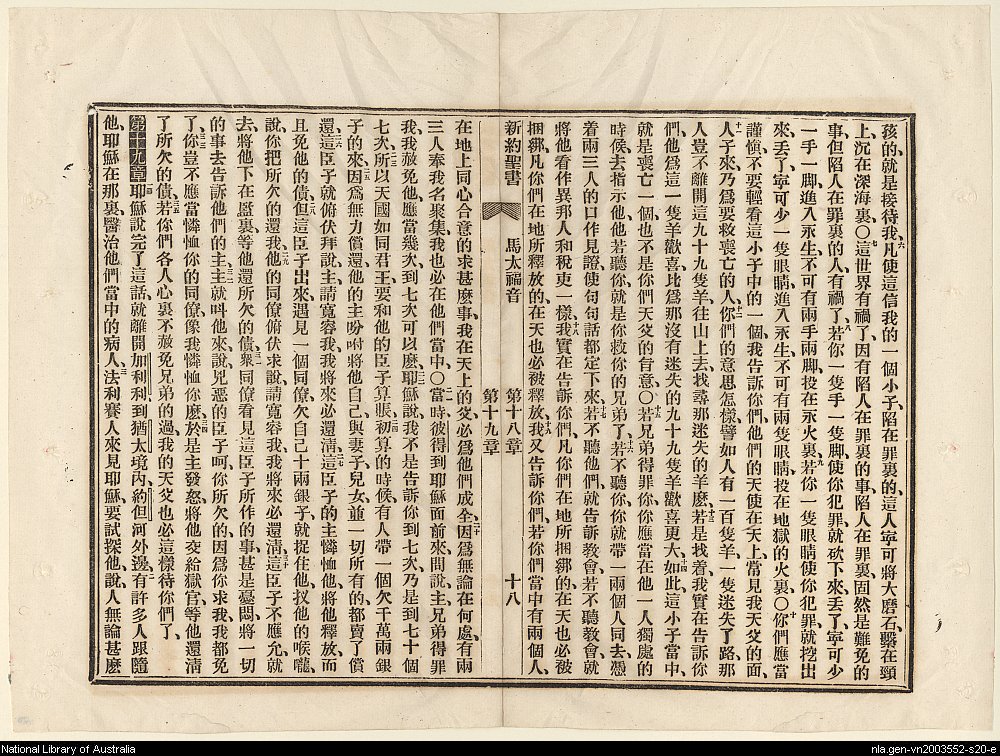 孩的就是接待我、凡使這信我的一個小子陷在罪裏的、這人寧可將大磨石、繫在頸
上、沉在深海裏、〇這世界有禍了、因有陷人在罪裏的事、陷人在罪裏、固然是難免的
事、但陷人在罪裏的人有禍了、若你一隻手、一隻脚、使你犯罪、就砍下來丟了、寧可少
一手一脚、進入永生、不可有兩手兩脚、投在永火裏、若你一隻眼睛使你犯罪、就挖出
來丟了、寧可少一隻眼睛、進入永生、不可有兩隻眼睛、投在地獄的火裏、〇你們應當
謹愼、不要輕看這小子中的一個、我告訴你們、他們的天使在天上、常見我天父的面、
人子來、乃爲要救喪亡的人、你們的意思怎樣、譬如人有一百隻羊、一隻迷失了路、那
人豈不離開這九十九隻羊、往山上去、找尋那迷失的羊麽、若是找着、我實在告訴你
們、他爲這一隻羊歡喜、比爲那沒有迷失的九十九隻羊、歡喜更大、如此、這小子當中、
就是喪亡一個、也不是你們天父的旨意、〇若兄弟得罪你、你應當在他一人獨處的
時候、去指示他、他若聽你、就是你救你的兄弟了、若不聽你、你就帶一兩個人同去、憑
着兩三人的口作見證、使句句話都定下來、若不聽他們、就告訴敎會、若不聽敎會、就
將他看作異邦人和稅吏一樣、我實在告訴你們、凡你們在地所捆綁的、在天也必被
捆綁、凡你們在地所釋放的、在天也必被釋放、我又告訴你們、若你們當中有兩個人、
新約聖書 馬太福音 第十八章 第十九章 十八
在地上同心合意的求甚麽事、我在天上的父、必爲他們成全、因爲無論在何處、有兩
三人奉我名聚集、我也必在他們當中、〇當時彼得到耶穌面前來、問說、主、兄弟得罪
我、我赦免他、應當幾次、到七次可以麽、耶穌說、我不是告訴你到七次、乃是到七十個
七次、所以天國如同君王、要和他的臣子算賬、初算的時候、有人帶一個欠千萬兩銀
子的來、因爲無力償還、他的主吩咐將他自己、與妻子兒女、並一切所有的都賣了償
還、這臣子就俯伏拜說、主請寬容我、我將來必還淸、這臣子的主憐恤他、將他釋放、而
且免他的債、但這臣子出來、遇見一個同僚、欠自己十兩銀子、就捉住他、扠他的喉嚨、
說、你把所欠的還我、他的同僚俯伏求說、請寬容我、我將來必還淸、這臣子不應允、就
去將他下在監裏、等他還所欠的債、衆同僚看見這臣子所作的事、甚是憂悶、將一切
的事去告訴他們的主、主就叫他來、說、兇惡臣子呵、你所欠的、因爲你求我、我都免
了、你豈不應當憐恤你的同僚、像我憐恤你麽、於是主發怒、將他交給獄官、等他還淸
了所欠的債、若你們各人心裏不赦免兄弟的過、我的天父也必這樣待你們了、
第十九章 耶穌說完了這話、就離開加利利、到猶太境內、約但河外邊、有許多人跟隨
他、耶穌在那裏醫治他們當中的病人、法利賽人來見耶穌、要試探他、說、人無論甚麽
National Library of Australia
nla.gen-vn2003552-s20-e